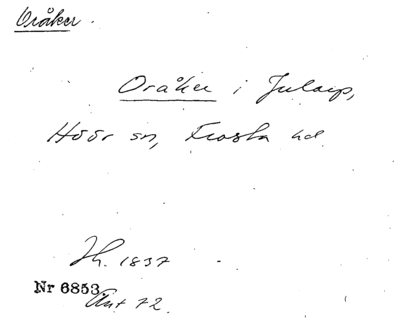 Oråker.
Oråker i Jularp,
Höör sn, Frosta hd
Jh. 1837
Nr 6853
Akt 72.